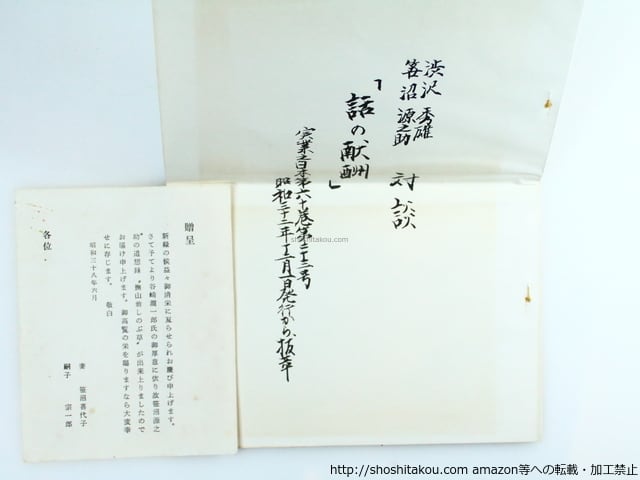 渋沢 秀雄
笹沼 源之助 対談
「話の献酬」
実業之日本第六十巻第二十三号
昭和三十二年十二月一日発行から、抜萃
贈呈
新緑の候益々御清栄に亘らせられお慶び申上げます。
さて予てより谷崎潤一郎氏の御厚意に依り故笹沼源之
助の追想録〝撫山翁しのぶ草〟が出来上りましたので
お届け申上げます。御高覧の栄を賜りますなら大変幸
せに存じます。 敬白
昭和三十八年六月
妻 笹沼喜代子
嗣子 宗一郎
各位
shoshitakou.com
http://shoshitakou.com amazon等への転載・加工禁止